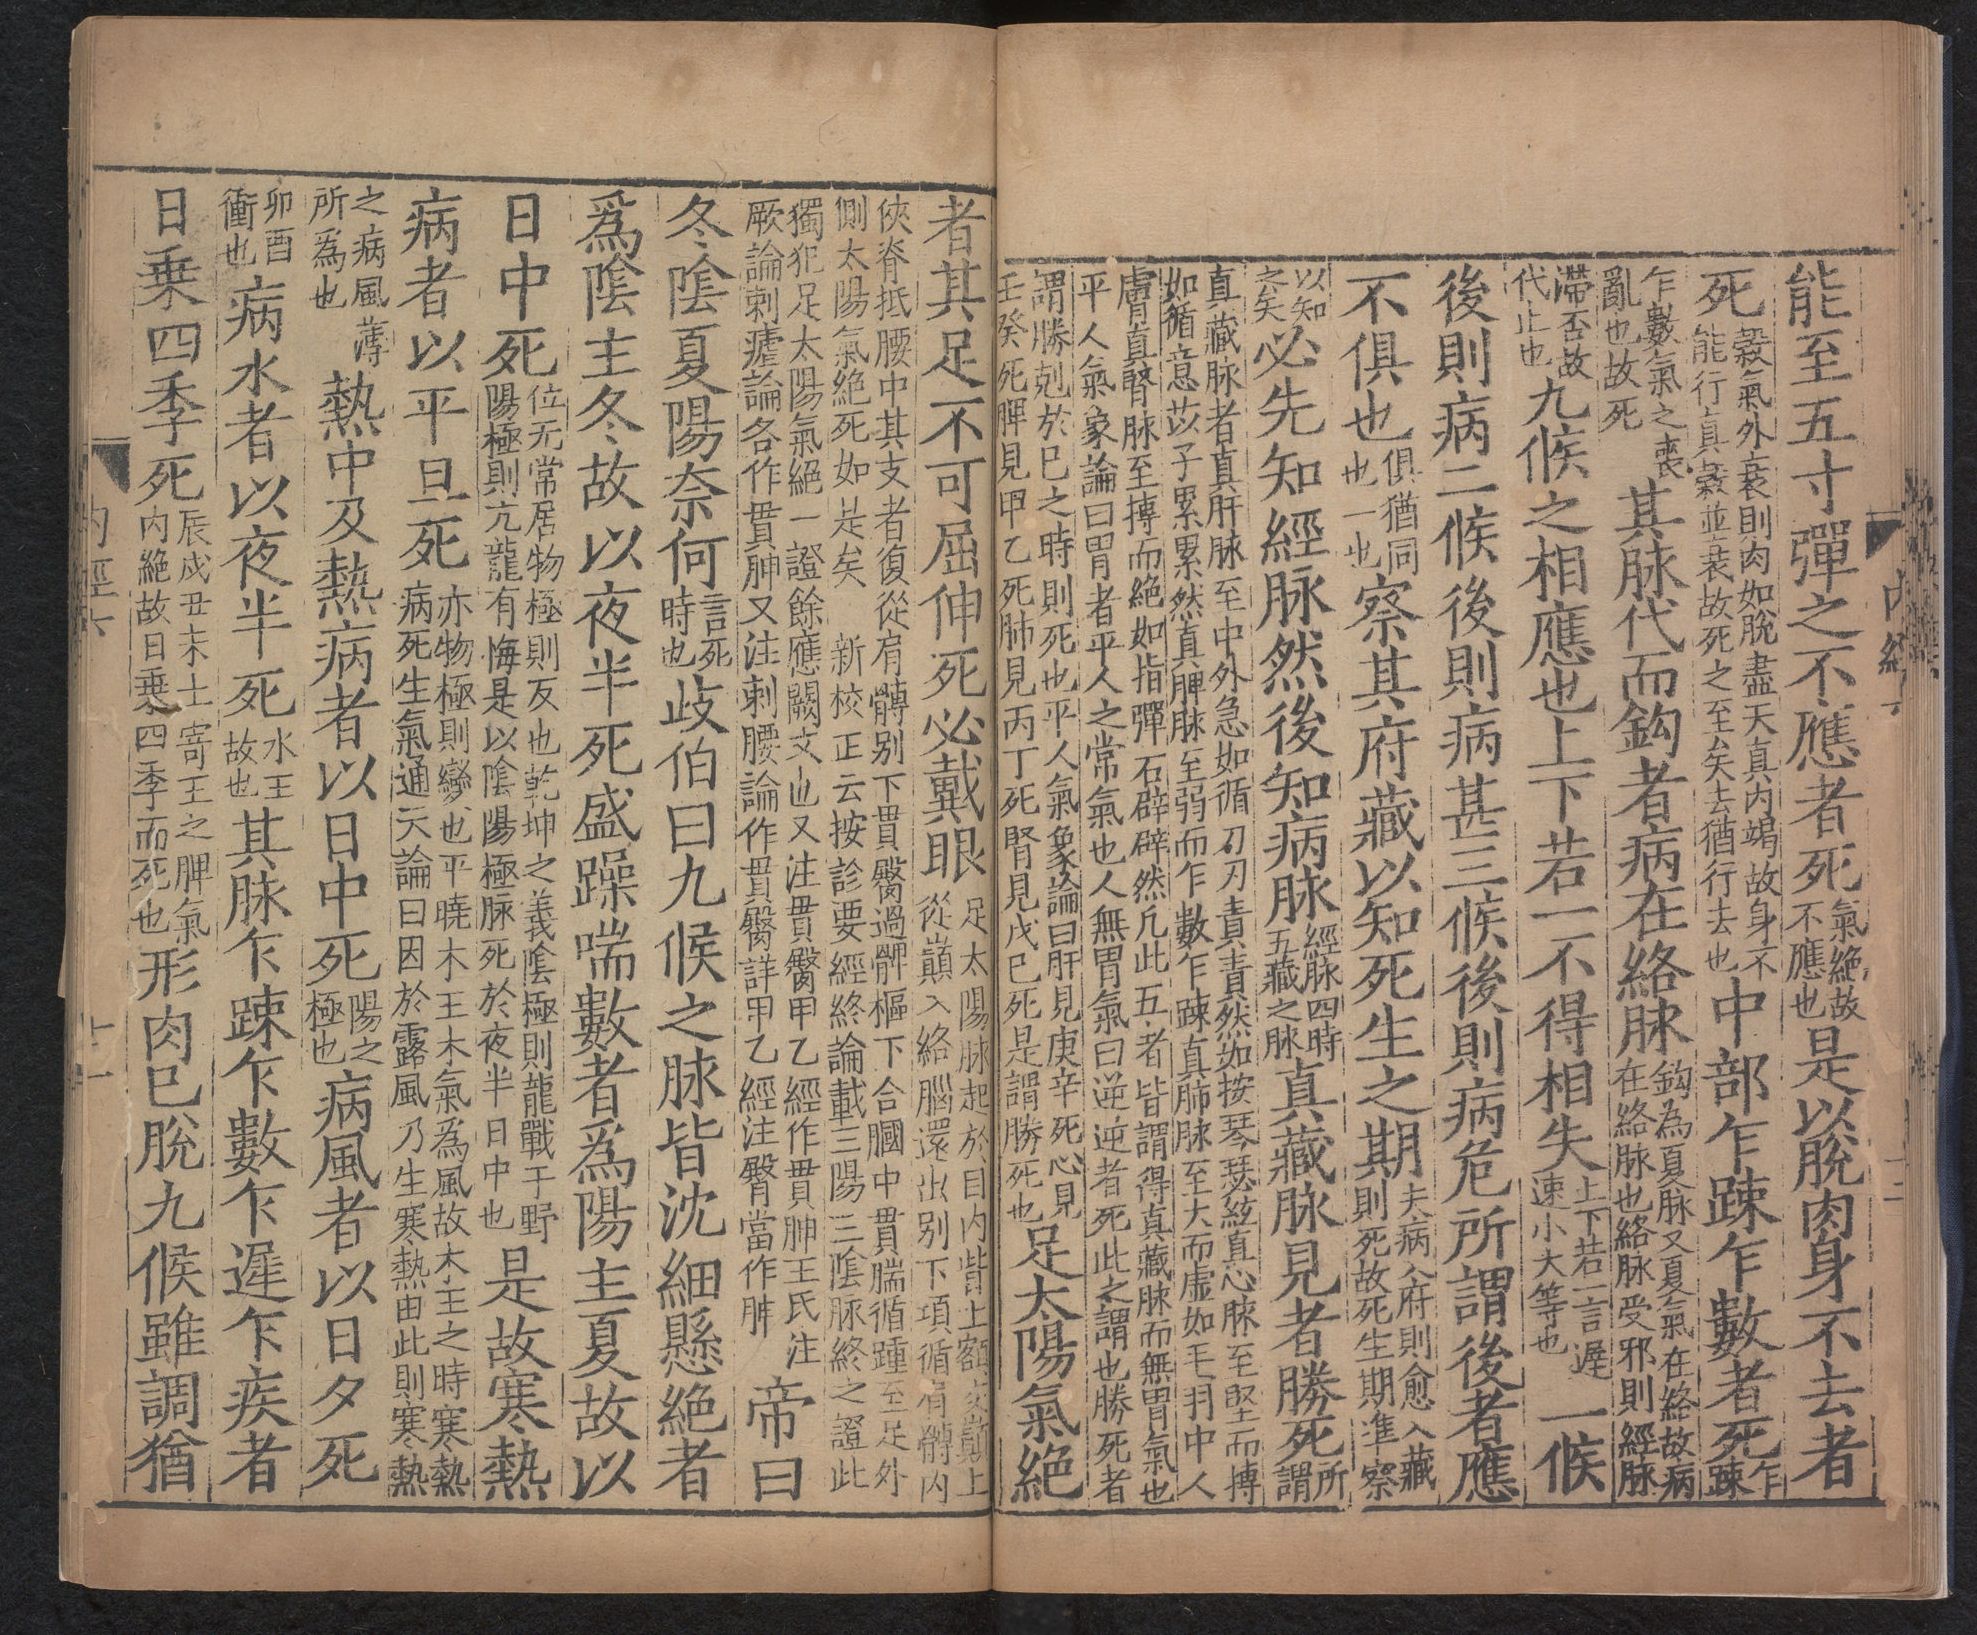 能至五寸彈之不應者死氣絕故不應也是以脫肉身不去者
死穀氣外衰則肉如脫盡天真內竭故身不能行真穀並衰故死之至矣去猶行去也中部乍踈乍數者死乍踈
乍數氣之喪亂也故死其脉代而鈎者病在絡脉鈎為夏脉又夏氣在絡故病在絡脉也絡脉受邪則經脉
滯否故代止也九候之相應也上下若一不得相失上下若一言遲速小大等也一候
後則病二候後則病甚三候後則病危所謂後者應
不俱也俱猶同也一也察其府藏以知死生之期夫病入府則愈入藏則死故死生期準察
以知之矣必先知經脉然後知病脉經脉四時五藏之脉真藏脉見者勝死所謂
真藏脉者真肝脉至中外急如循刀刃責責然如按琴瑟絃真心脉至堅而搏
如循意苡子累累然真脾脉至弱而乍數乍踈真肺脉至大而虛如毛羽中人
膚真腎脉至搏而絕如指彈石辟辟然凡此五者皆謂得真藏脉而無胃氣也
平人氣象論曰胃者平人之常氣也人無胃氣曰逆逆者死此之謂也勝死者
謂勝剋於已之時則死也平人氣象論曰肝見庚辛死心見
壬癸死脾見甲乙死肺見丙丁死腎見戊巳死是謂勝死也足太陽氣絕
者其足不可屈伸死必戴眼足太陽脉起於目內眥上額交巔上從巔入絡腦還出別下項循肩髆內
俠脊抵腰中其支者復從肩髆別下貫臋過髀樞下合膕中貫腨循踵至足外
側太陽氣絕死如是矣 新校正云按診要經終論載三陽三陰脉終之證此
獨犯足太陽氣絕一證餘應闕文也又注貫臋甲乙經作貫胂王氏注
厥論刺瘧論各作貫胂又注刺腰論作貫臋詳甲乙經注臋當作胂帝曰
冬陰夏陽奈何言死時也歧伯曰九候之脉皆沈細懸絕者
為陰主冬故以夜半死盛躁喘數者為陽主夏故以
日中死位无常居物極則反也乾坤之義陰極則龍戰于野陽極則亢龍有悔是以陰陽極脉死於夜半日中也是故寒熱
病者以平旦死亦物極則變也平曉木王木氣為風故木王之時寒熱病死生氣通天論曰因於露風乃生寒熱由此則寒熱
之病風薄所為也熱中及熱病者以日中死陽之極也病風者以日夕死
卯酉衝也病水者以夜半死水王故也其脉乍踈乍數乍遲乍疾者
日乗四季死辰戌丑未土寄王之脾氣內絕故日乗四季而死也形肉已脫九候雖調猶